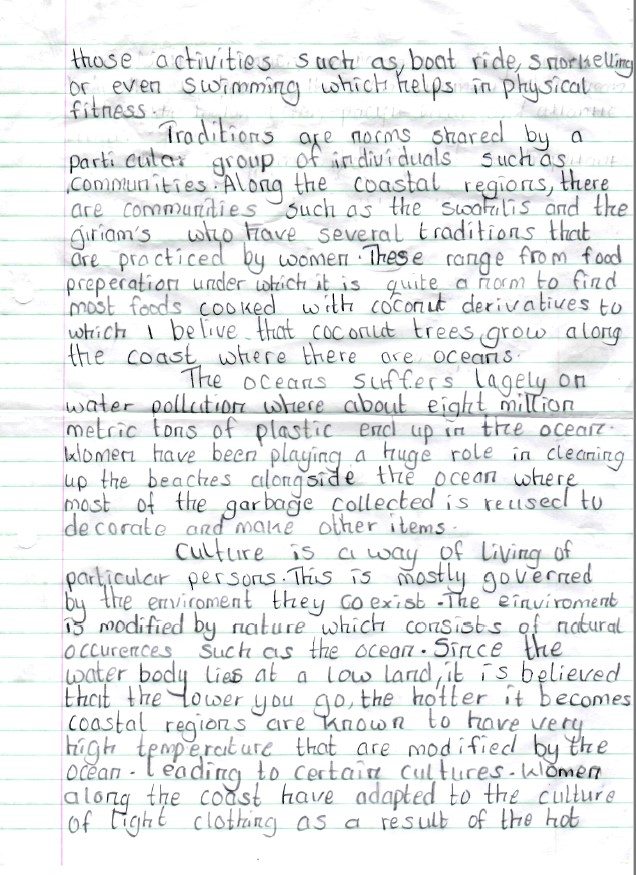 those activities such as, boat ride, snorkelling
or even swimming which helps in physical
fitness.
Traditions are norms shared by a
particular group of individuals such as
communities. Along the coastal regions, there
are communities such as the swahilis and the
giriam's who have several traditions that
are practiced by women. These range from food
preperation under which it is quite a norm to find
most foods cooked with coconut derivatives to
which I belive that coconut trees grow along
the coast where there are oceans.
The oceans suffers lagely on
water pollution where about eight million
metric tons of plastic end up in the ocean.
Women have been playing a huge role in cleaning
up the beaches alongside the ocean where
most of the garbage collected is reused to
decorate and make other items.
Culture is a way of living of
particular persons. This is mostly governed
by the enviroment they co exist. The einviroment
is modified by nature which consists of natural
occurences such as the ocean. Since the
water body lies at a low land, it is believed
that the lower you go, the hotter it becomes
coastal regions are known to have very
high temperature that are modified by the
ocean. Leading to certain cultures. Women
along the coast have adapted to the culture
of light clothing as a result of the hot